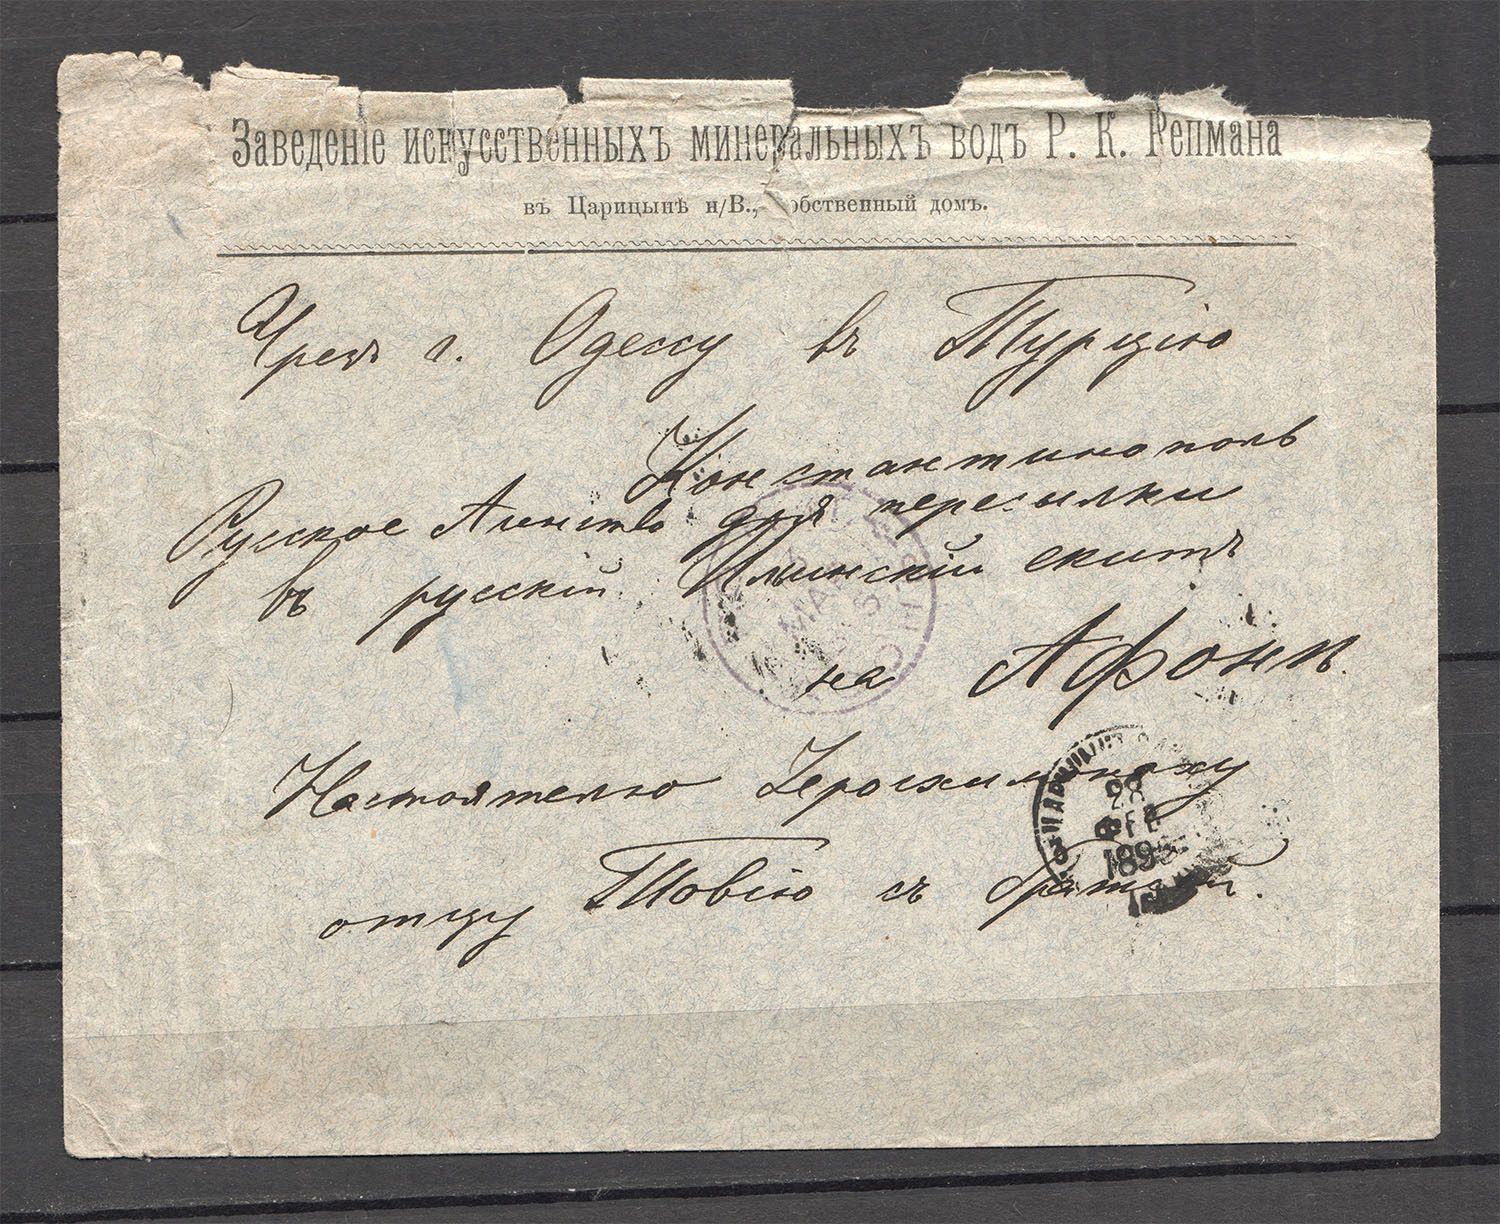 Заведеніе искусственныхъ минеральныхъ водъ Р. К. Репмана
въ Царицынѣ н/В., собственный домъ.
Чрезъ г. Одессу въ Турцію
Константинополь
Русское Агенство для пересылки
въ русскій Ильинскій скитъ
на Афонѣ.
Настоятелю Іеросхимонаху
отцу Товію съ братіей.
28
ФЕВ
МАР